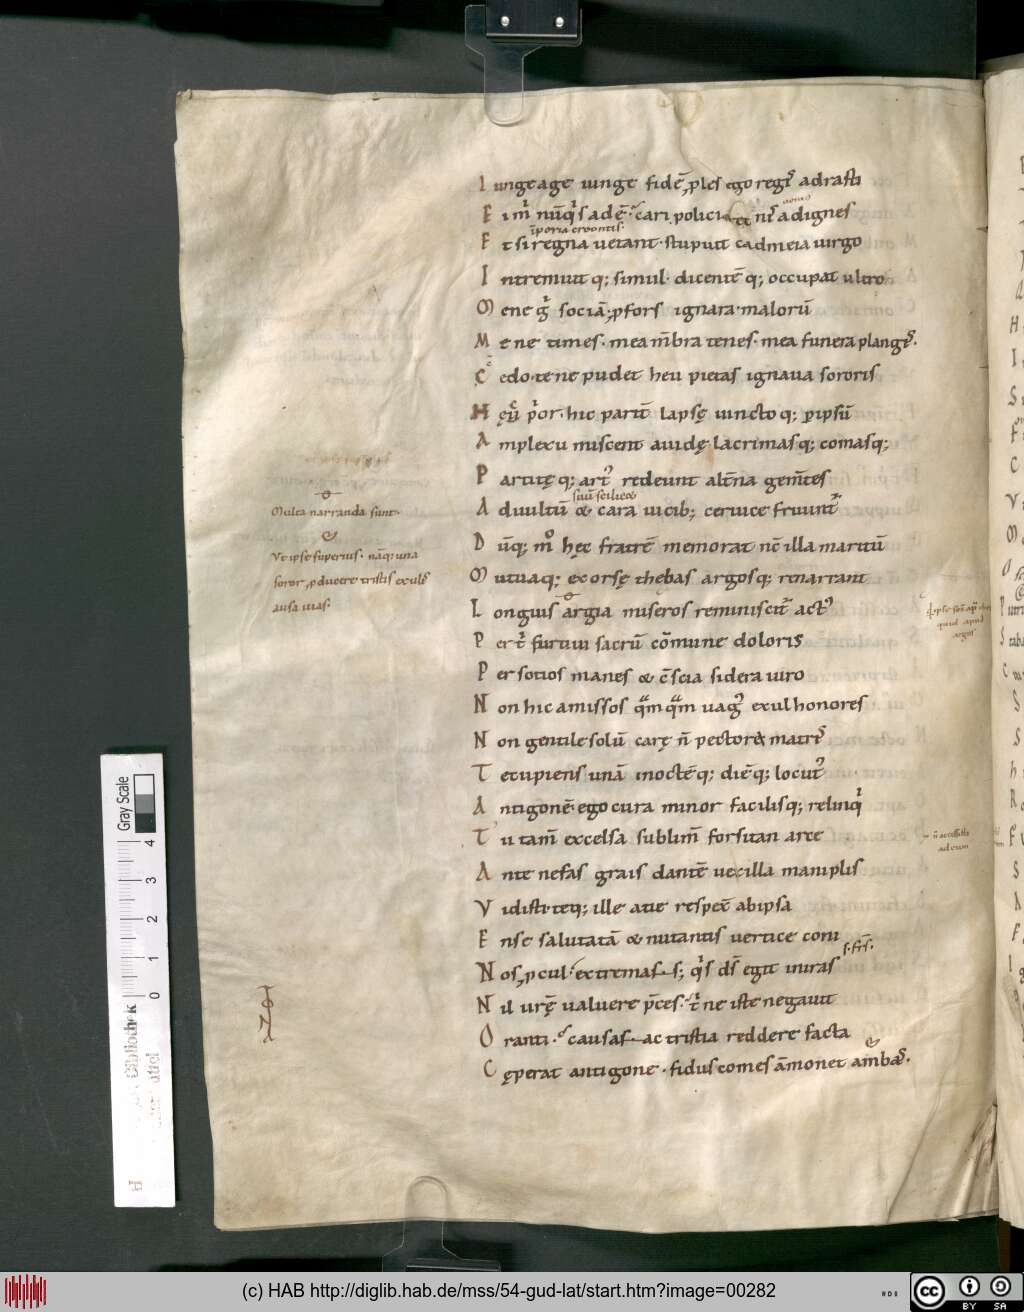 I unge age iunge fidē; ꝓles ego regꝭ adrasti
E im̄ nūqͥs adē· cari policis & nr̄ꝭ adignes
īꝑoria creontis·
E tsi regna uetant· stupuit cadmeia uirgo
I ntremuit q; simul· dicentē q; occupat ultro
M ene gͥ sociā; ꝓ fors ignara malorū
M e ne times· mea mēbra tenes· mea funera plangꝭ·
C edo· te ne pudet heu pietas ignaua sororis
H ęc̄ pͥor· hic parit̄ lapsę iuncto q; ꝑ ipsū
A mplexu miscent auidę lacrimasq; comasq;
P artitę q; artꝰ redeunt alt̄na gem̄tes
suū scilicet
A duultū & cara uicib; ceruice fruunt̄
D ūq; mͦ hęc fratrē memorat nc̄ illa maritū
M utuaq; exorsę thebas argosq; renarrant
L ongius argia miseros reminiscit̄ actꝰ
P er t̄ furtiui sacrū cōmune doloris
P er sotios manes & c̄scia sidera iuro
N on hic amissos qͣmqͣm uagꝰ exul honores
N on gentile solū carę n̄ pectora matrꝭ
T e cupiens unā noctēq; diēq; locutꝰ
A ntigonē· ego cura minor facilisq; relinqͥ
T u tam̄ excelsa sublim̄ forsitan arce
A nte nefas grais dantē uexilla maniplis
V idisti· teq; ille acie respex̄ ab ipsa
E nse salutatā & nutantis uertice coni
s· frs̄·
N os ꝓcul· extremas s; qͥs ds̄ egit in iras
N il urę̄ ualuere p̄ces· t̄ ne iste negauit
O ranti· causas ac tristia reddere facta
C ęperat antigone· fidus comes āmonet ambas·
Multa narranda sunt·
Vt ipse superius· nāq; una
soror ꝓducere tristis exulꝭ
ausa uias·
(c) HAB http://diglib.hab.de/mss/54-gud-lat/start.htm?image=00282
Gray Scale
0 1 2 3 4
Bibliothek
cc BY SA